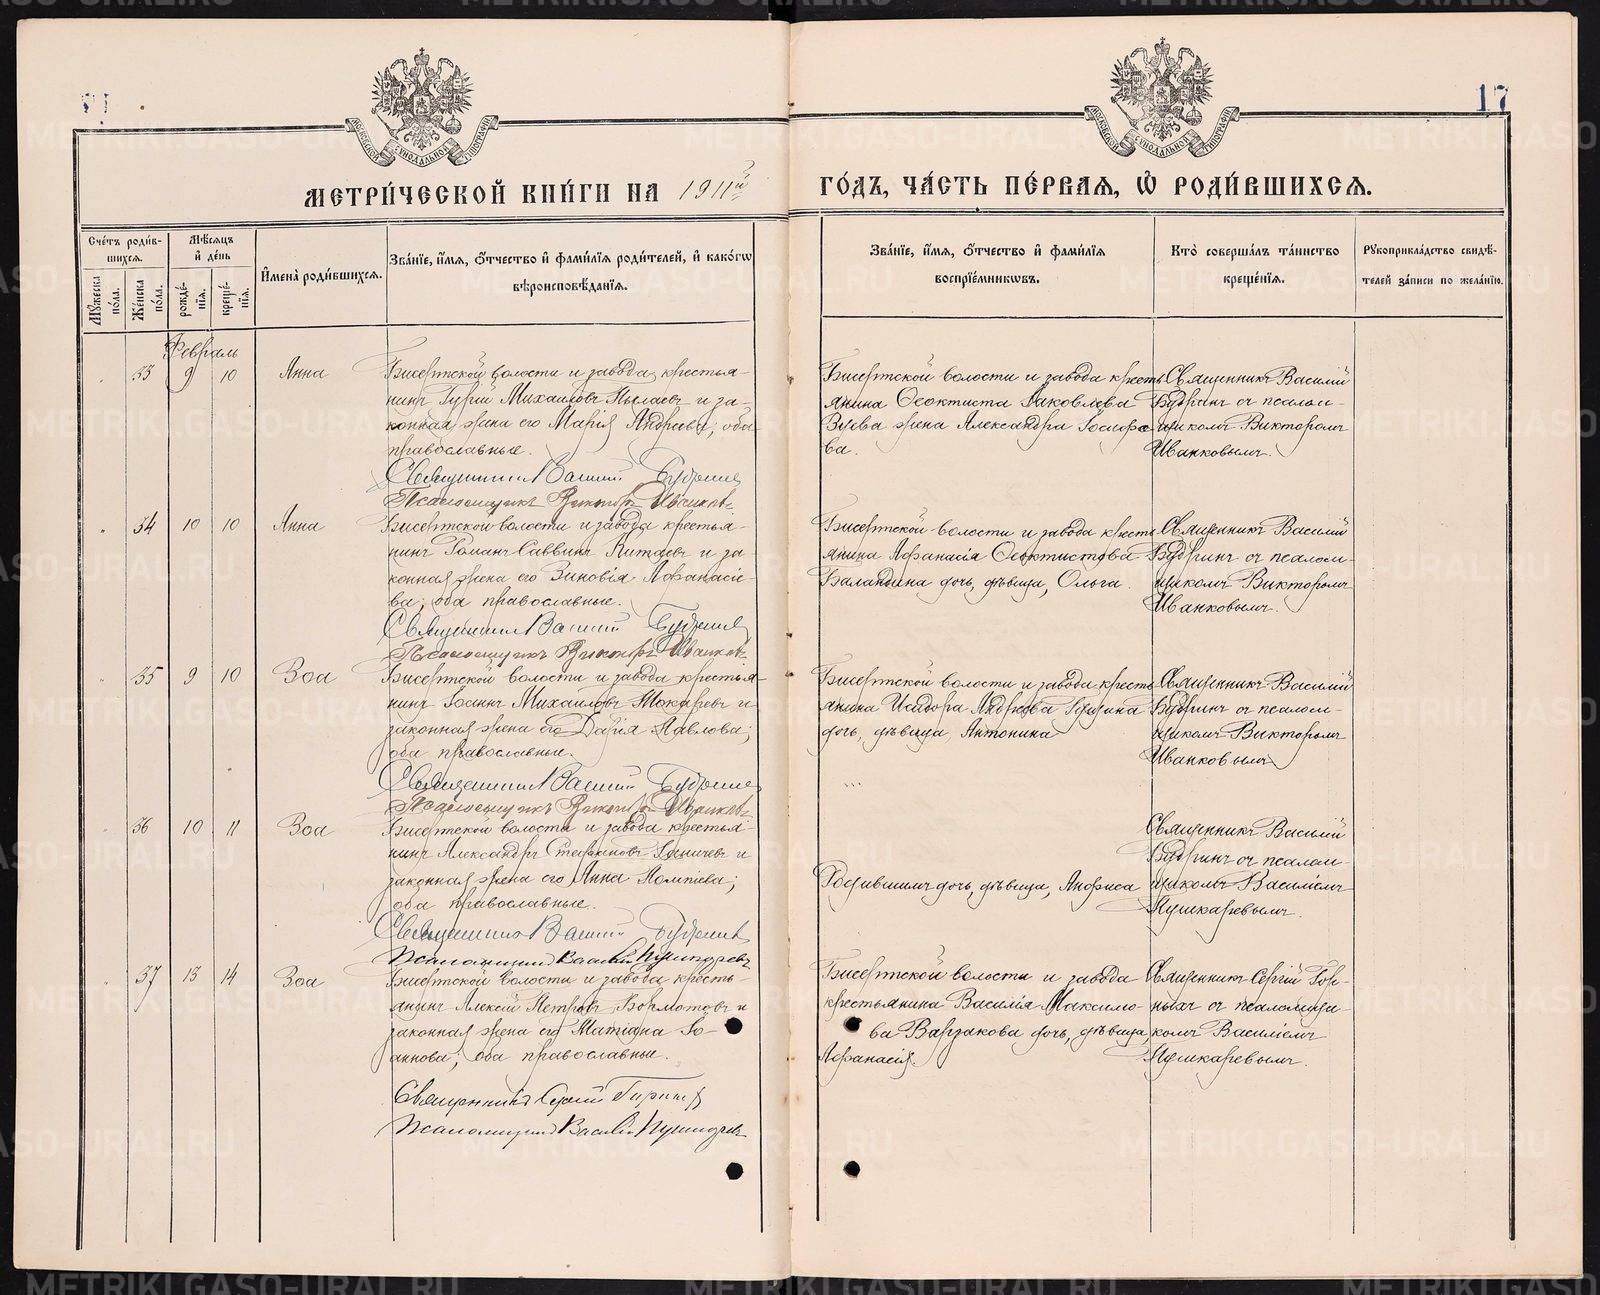 17
МЕТРИ́ЧЕСКОЙ КНИ́ГИ НА 1911й ГО́ДЪ, ЧА́СТЬ ПЕ́РВАЯ, Ѡ҆ РОДИ́ВШИХСЯ.
Сче́тъ роди́вшихся.
Мѣ́сяцъ и҆ де́нь
Мꙋ́жеска по́ла.
Же́нска по́ла.
рожде́нїя.
креще́нїя.
И҆мена̀ роди́вшихся.
Зва́нїе, и҆́мя, ѻ҆́тчество и҆ фами́лїя роди́телей, и҆ како́гѡ
вѣроисповѣ́данїя.
Зва́нїе, и҆́мя, ѻ҆́тчество и҆ фами́лїя
воспрїе́мникѡвъ.
Кто̀ соверша́лъ та́инство
креще́нїя.
Рꙋкоприкла́дство свидѣ́-
телей за́писи по жела́нїю.
Февраль
33 9 10 Анна
Бисертской волости и завода крестья-
нинъ Гурій Михаиловъ Пылаевъ и за-
конная жена его Марія Андреева; оба
православные.
Священникъ Василій Будринъ
Псаломщикъ Викторъ Иванковъ
Бисертской волости и завода кресть
янина Ѳеоктиста Іаковлева
Зуева жена Александра Іосифо-
ва.
Священникъ Василій
Будринъ съ псалом-
щикомъ Викторомъ
Иванковымъ.
34 10 10 Анна
Бисертской волости и завода крестья-
нинъ Романъ Саввинъ Китаевъ и за
конная жена его Зиновія Аѳанасіе-
ва; оба православные.
Священникъ Василій Будринъ
Псаломщикъ Викторъ Иванковъ
Бисертской волости и завода кресть
янина Аѳанасія Ѳеоктистова
Баландина дочь, дѣвица, Ольга.
Священникъ Василій
Будринъ съ псалом-
щикомъ Викторомъ
Иванковымъ.
35 9 10 Зоа
Бисертской волости и завода крестья-
нинъ Іоаннъ Михаиловъ Токаревъ и
законная жена его Дарія Павлова;
оба православные.
Священникъ Василій Будринъ
Псаломщикъ Викторъ Иванковъ
Бисертской волости и завода кресть
янина Исидора Андреева
дочь, дѣвица, Антонина
Священникъ Василій
Будринъ съ псалом-
щикомъ Викторомъ
Иванковымъ
36 10 11 Зоа
Бисертской волости и завода крестья-
нинъ Александръ Стефановъ и
законная жена его Анна;
оба православные.
Священникъ Василій Будринъ
Псаломщикъ Василій Пушкаревъ
Родившимъ дочь, дѣвица, Анфиса
Священникъ Василій
Будринъ съ псалом-
щикомъ Василіемъ
Пушкаревымъ.
37 13 14 Зоа
Бисертской волости и завода кресть-
янинъ Алексій Петровъ Бормотовъ и
законная жена его Матіана Іо-
аннова; оба православные.
Священникъ Сергій
Псаломщикъ Василій Пушкаревъ
Бисертской волости и завода
крестьянина Василія Максимо-
ва Варзакова дочь, дѣвица,
Аѳанасія.
Священникъ Сергій Гор-
ныхъ съ псаломщи-
комъ Василіемъ
Пушкаревымъ.
METRIKI.GASO-URAL.RU